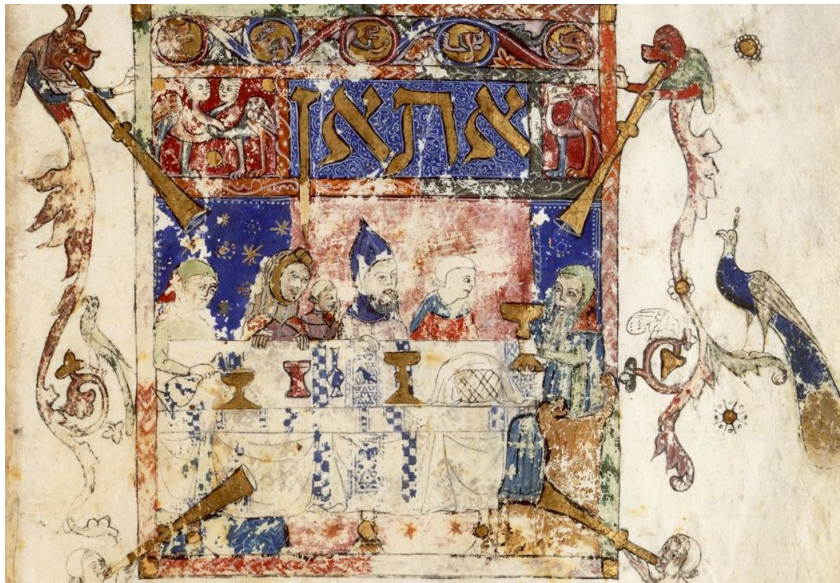 אתאן